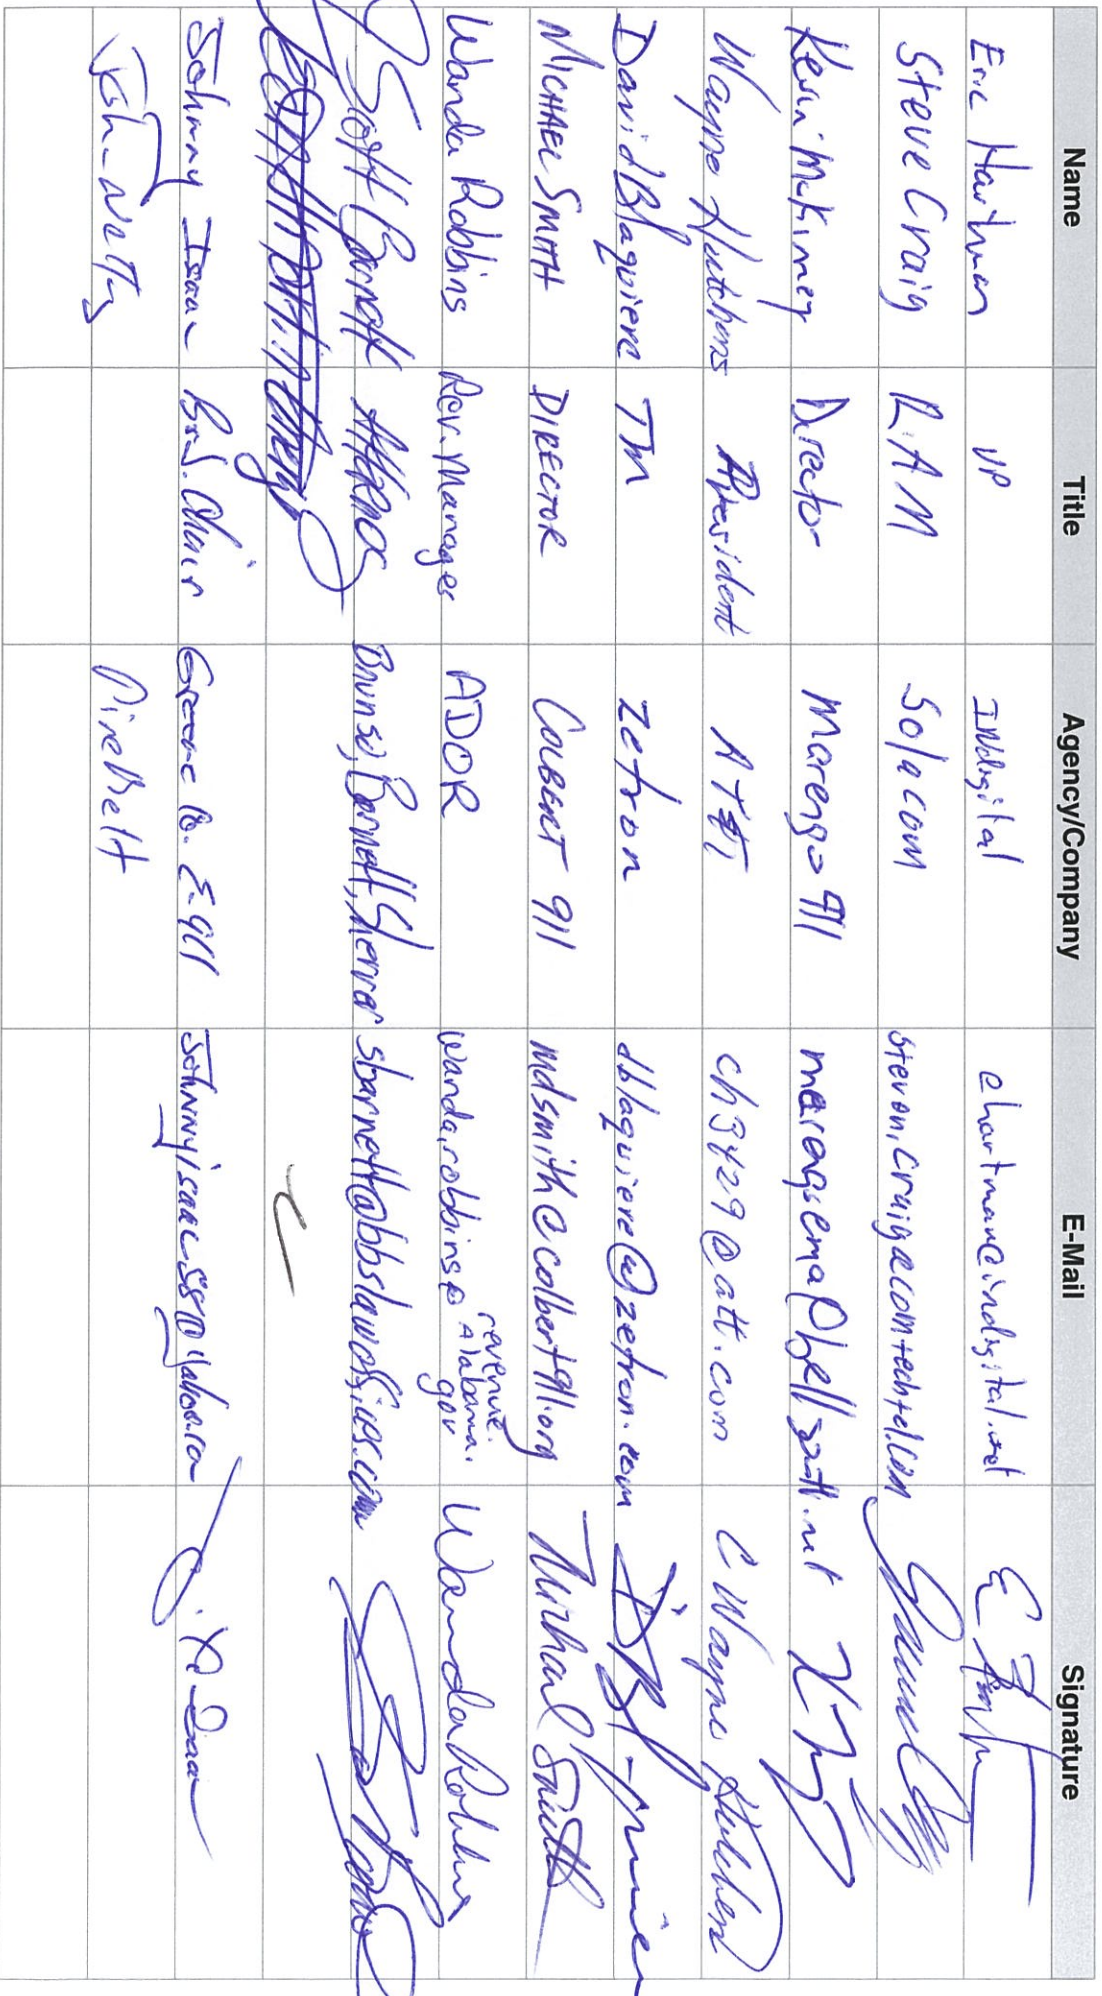 Name Title Agency/Company E-Mail Signature
Eric Hartman VP INdigital ehartman@indigital.net
Steve Craig RAM Solacom steven.craig@comtechtel.com
Kevin McKinney Director Marengo 911
Wayne Hutchens President AT&T ch3429@att.com C Wayne Hutchens
David Blaquiere TM Zetron dblaquiere@zetron.com
MICHAEL SMITH DIRECTOR COLBERT 911 mdsmith@colbert911.org Michael Smith
Wanda Robbins Rev. Manager ADOR wanda.robbins@revenue.Alabama.gov Wanda Robbins
Scott Barnett sbarnett@bbslawoffices.com
Johnny Isaac Brd. Chair Greene Co. E-911
Pine Belt